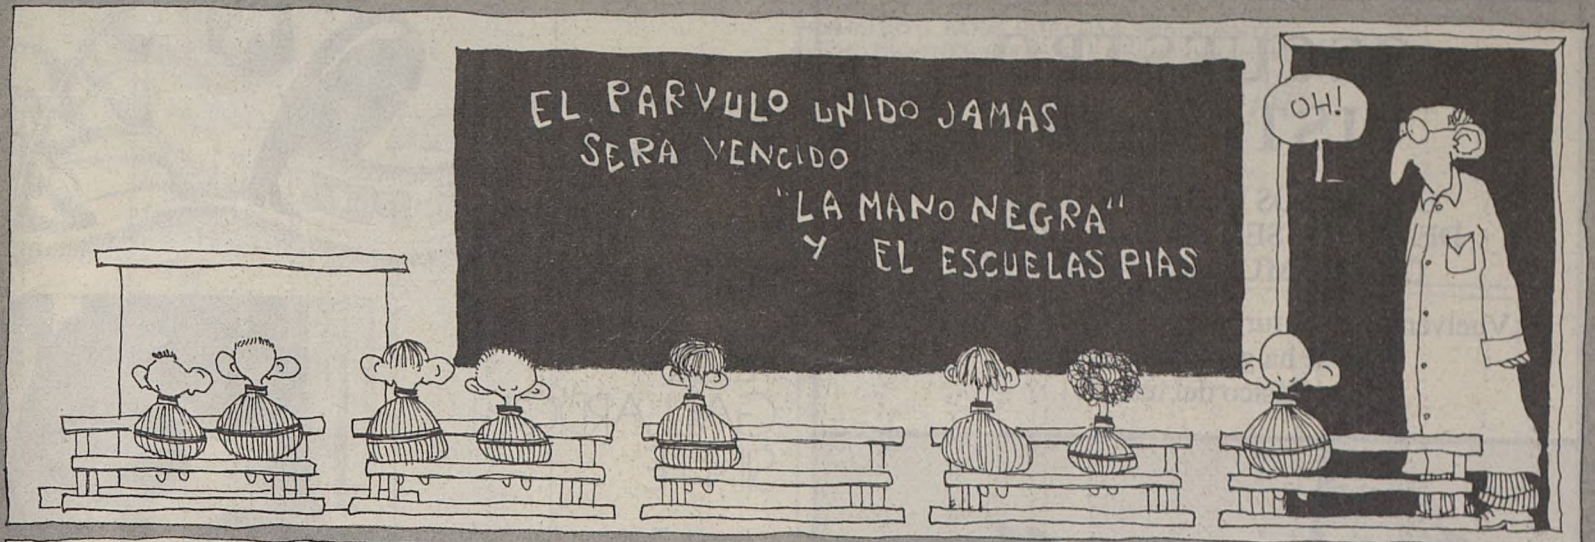 EL PARVULO UNIDO JAMAS
SERA VENCIDO
"LA MANO NEGRA"
Y EL ESCUELAS PIAS
OH!